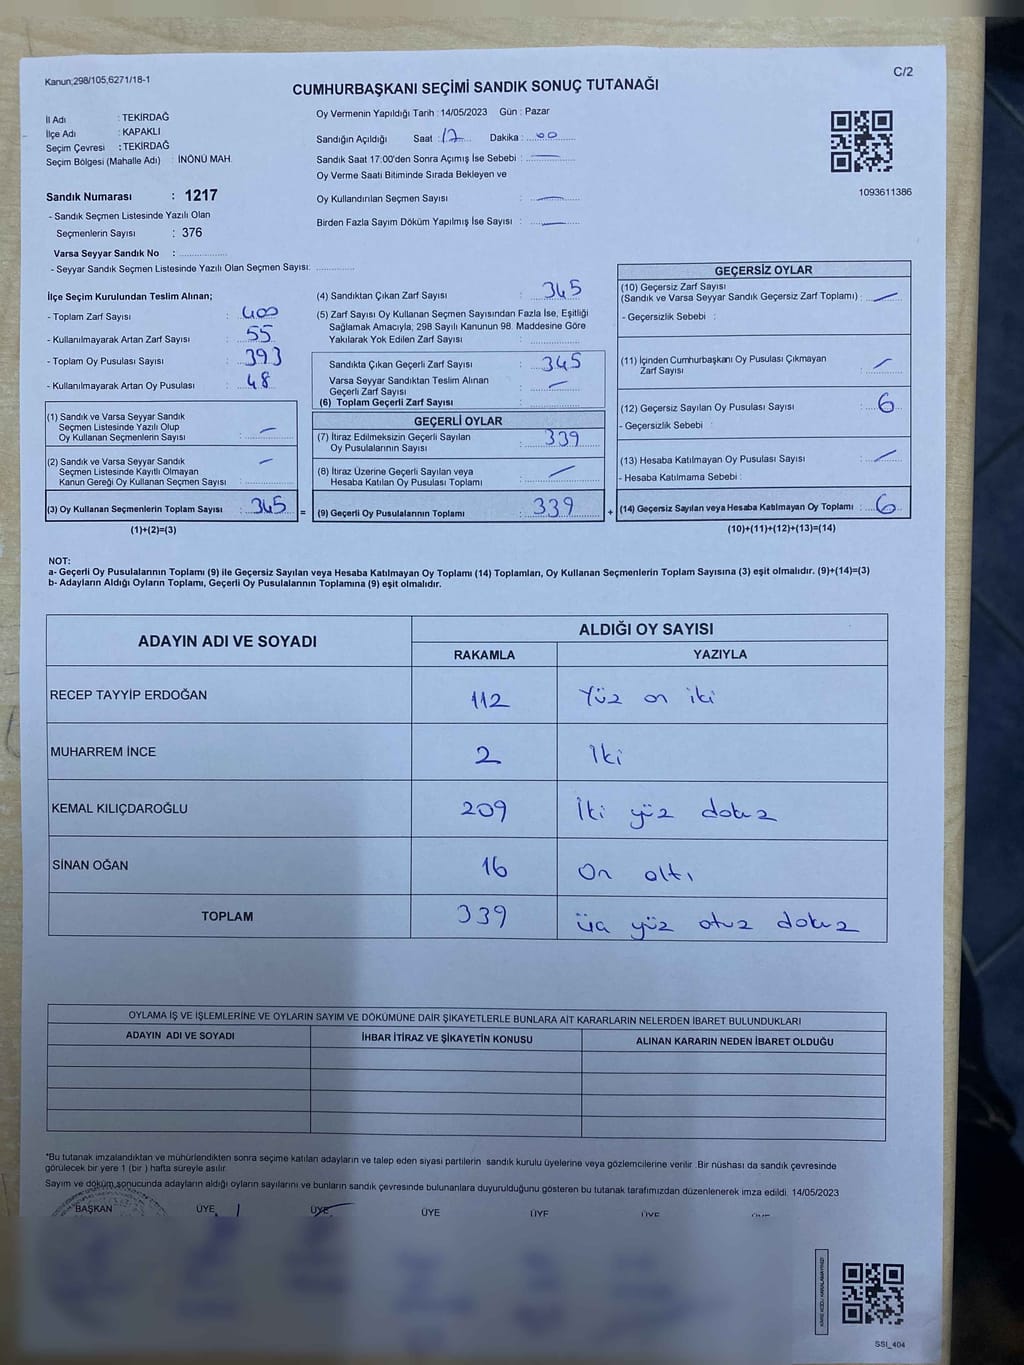 Kanun;298/105,6271/18-1
C/2
CUMHURBAŞKANI SEÇİMİ SANDIK SONUÇ TUTANAĞI
İl Adı : TEKİRDAĞ
İlçe Adı : KAPAKLI
Seçim Çevresi : TEKİRDAĞ
Seçim Bölgesi (Mahalle Adı) : İNÖNÜ MAH.
Sandık Numarası : 1217
- Sandık Seçmen Listesinde Yazılı Olan
Seçmenlerin Sayısı : 376
Varsa Seyyar Sandık No : ..................
- Seyyar Sandık Seçmen Listesinde Yazılı Olan Seçmen Sayısı: ..............
Oy Vermenin Yapıldığı Tarih : 14/05/2023 Gün : Pazar
Sandığın Açıldığı Saat : 17 Dakika : 00
Sandık Saat 17:00'den Sonra Açımış İse Sebebi : —
Oy Verme Saati Bitiminde Sırada Bekleyen ve
Oy Kullandırılan Seçmen Sayısı : —
Birden Fazla Sayım Döküm Yapılmış İse Sayısı : —
1093611386
İlçe Seçim Kurulundan Teslim Alınan;
- Toplam Zarf Sayısı : 400
- Kullanılmayarak Artan Zarf Sayısı : 55
- Toplam Oy Pusulası Sayısı : 393
- Kullanılmayarak Artan Oy Pusulası : 48
(1) Sandık ve Varsa Seyyar Sandık
Seçmen Listesinde Yazılı Olup
Oy Kullanan Seçmenlerin Sayısı : —
(2) Sandık ve Varsa Seyyar Sandık
Seçmen Listesinde Kayıtlı Olmayan
Kanun Gereği Oy Kullanan Seçmen Sayısı : —
(3) Oy Kullanan Seçmenlerin Toplam Sayısı : 345
(1)+(2)=(3)
(4) Sandıktan Çıkan Zarf Sayısı : 345
(5) Zarf Sayısı Oy Kullanan Seçmen Sayısından Fazla İse, Eşitliği
Sağlamak Amacıyla; 298 Sayılı Kanunun 98. Maddesine Göre
Yakılarak Yok Edilen Zarf Sayısı :
Sandıkta Çıkan Geçerli Zarf Sayısı : 345
Varsa Seyyar Sandıktan Teslim Alınan
Geçerli Zarf Sayısı : —
(6) Toplam Geçerli Zarf Sayısı :
GEÇERLİ OYLAR
(7) İtiraz Edilmeksizin Geçerli Sayılan
Oy Pusulasının Sayısı : 339
(8) İtiraz Üzerine Geçerli Sayılan veya
Hesaba Katılan Oy Pusulası Toplamı : —
= (9) Geçerli Oy Pusulalarının Toplamı : 339 +
GEÇERSİZ OYLAR
(10) Geçersiz Zarf Sayısı
(Sandık ve Varsa Seyyar Sandık Geçersiz Zarf Toplamı) : —
- Geçersizlik Sebebi :
(11) İçinden Cumhurbaşkanı Oy Pusulası Çıkmayan
Zarf Sayısı : —
(12) Geçersiz Sayılan Oy Pusulası Sayısı : 6
- Geçersizlik Sebebi :
(13) Hesaba Katılmayan Oy Pusulası Sayısı : —
- Hesaba Katılmama Sebebi :
(14) Geçersiz Sayılan veya Hesaba Katılmayan Oy Toplamı : 6
(10)+(11)+(12)+(13)=(14)
NOT:
a- Geçerli Oy Pusulalarının Toplamı (9) ile Geçersiz Sayılan veya Hesaba Katılmayan Oy Toplamı (14) Toplamları, Oy Kullanan Seçmenlerin Toplam Sayısına (3) eşit olmalıdır. (9)+(14)=(3)
b- Adayların Aldığı Oyların Toplamı, Geçerli Oy Pusulalarının Toplamına (9) eşit olmalıdır.
ADAYIN ADI VE SOYADI
ALDIĞI OY SAYISI
RAKAMLA YAZIYLA
RECEP TAYYİP ERDOĞAN 112 Yüz on iki
MUHARREM İNCE 2 İki
KEMAL KILIÇDAROĞLU 209 İki yüz dokuz
SİNAN OĞAN 16 On altı
TOPLAM 339 üç yüz otuz dokuz
OYLAMA İŞ VE İŞLEMLERİNE VE OYLARIN SAYIM VE DÖKÜMÜNE DAİR ŞİKAYETLERLE BUNLARA AİT KARARLARIN NELERDEN İBARET BULUNDUKLARI
ADAYIN ADI VE SOYADI İHBAR İTİRAZ VE ŞİKAYETİN KONUSU ALINAN KARARIN NEDEN İBARET OLDUĞU
*Bu tutanak imzalandıktan ve mühürlendikten sonra seçime katılan adayların ve talep eden siyasi partilerin sandık kurulu üyelerine veya gözlemcilerine verilir. Bir nüshası da sandık çevresinde
görülecek bir yere 1 (bir ) hafta süreyle asılır.
Sayım ve döküm sonucunda adayların aldığı oyların sayılarını ve bunların sandık çevresinde bulunanlara duyurulduğunu gösteren bu tutanak tarafımızdan düzenlenerek imza edildi. 14/05/2023
BAŞKAN ÜYE ÜYE ÜYE ÜYE ÜYE ÜYE
SSI_404